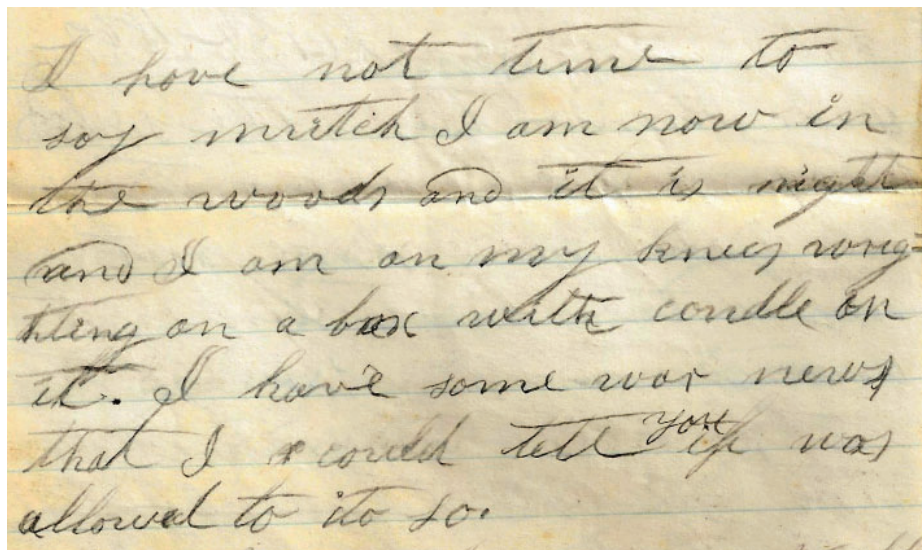 I have not time to
say mutch I am now in
the woods and it is night
and I am on my knees wrig-
hting on a box with candle on
it. I have some war news
that I could tell you if was
allowed to ito so.